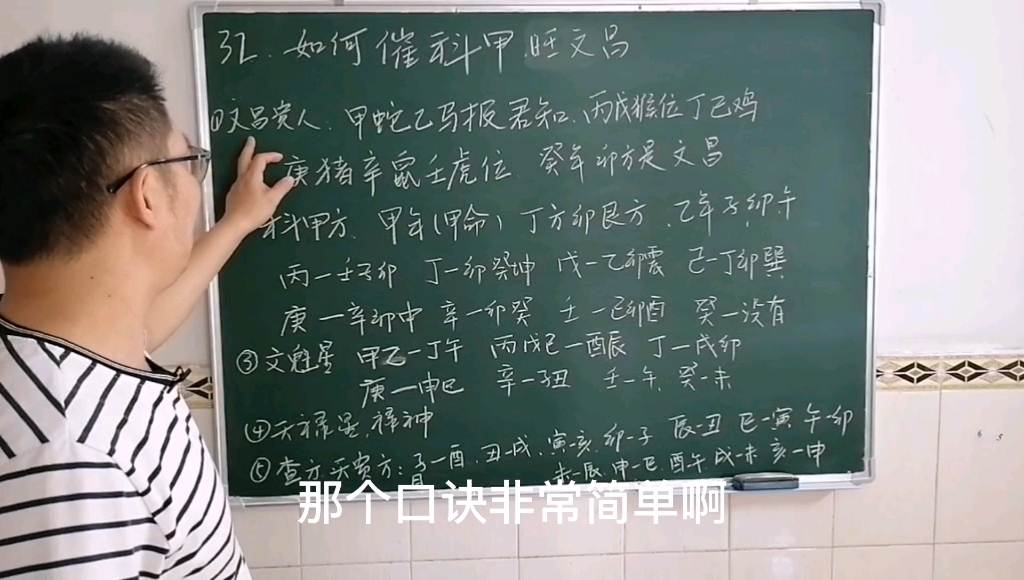 32.如何催科甲旺文昌
①文昌贵人.甲蛇乙马报君知.丙戊猴位丁己鸡
庚猪辛鼠壬虎位.癸年卯方是文昌
科甲方.甲年(甲命)丁方卯艮方.乙年子,卯,午
丙一壬子卯 丁一卯癸坤 戊一乙卯震 己一丁卯巽
庚一辛卯申 辛一卯癸 壬一己卯酉 癸一没有
③文魁星 甲乙一丁午 丙戊己一酉辰 丁一戌卯
庚一申巳 辛一子丑 壬一午 癸一未
④天禄星,禄神
⑤查 天贵方:子一酉.丑一戌.寅一亥.卯一子 辰一丑 巳一寅 午一卯
月 未一辰.申一巳.酉午 戌一未 亥一申
那个口诀非常简单啊